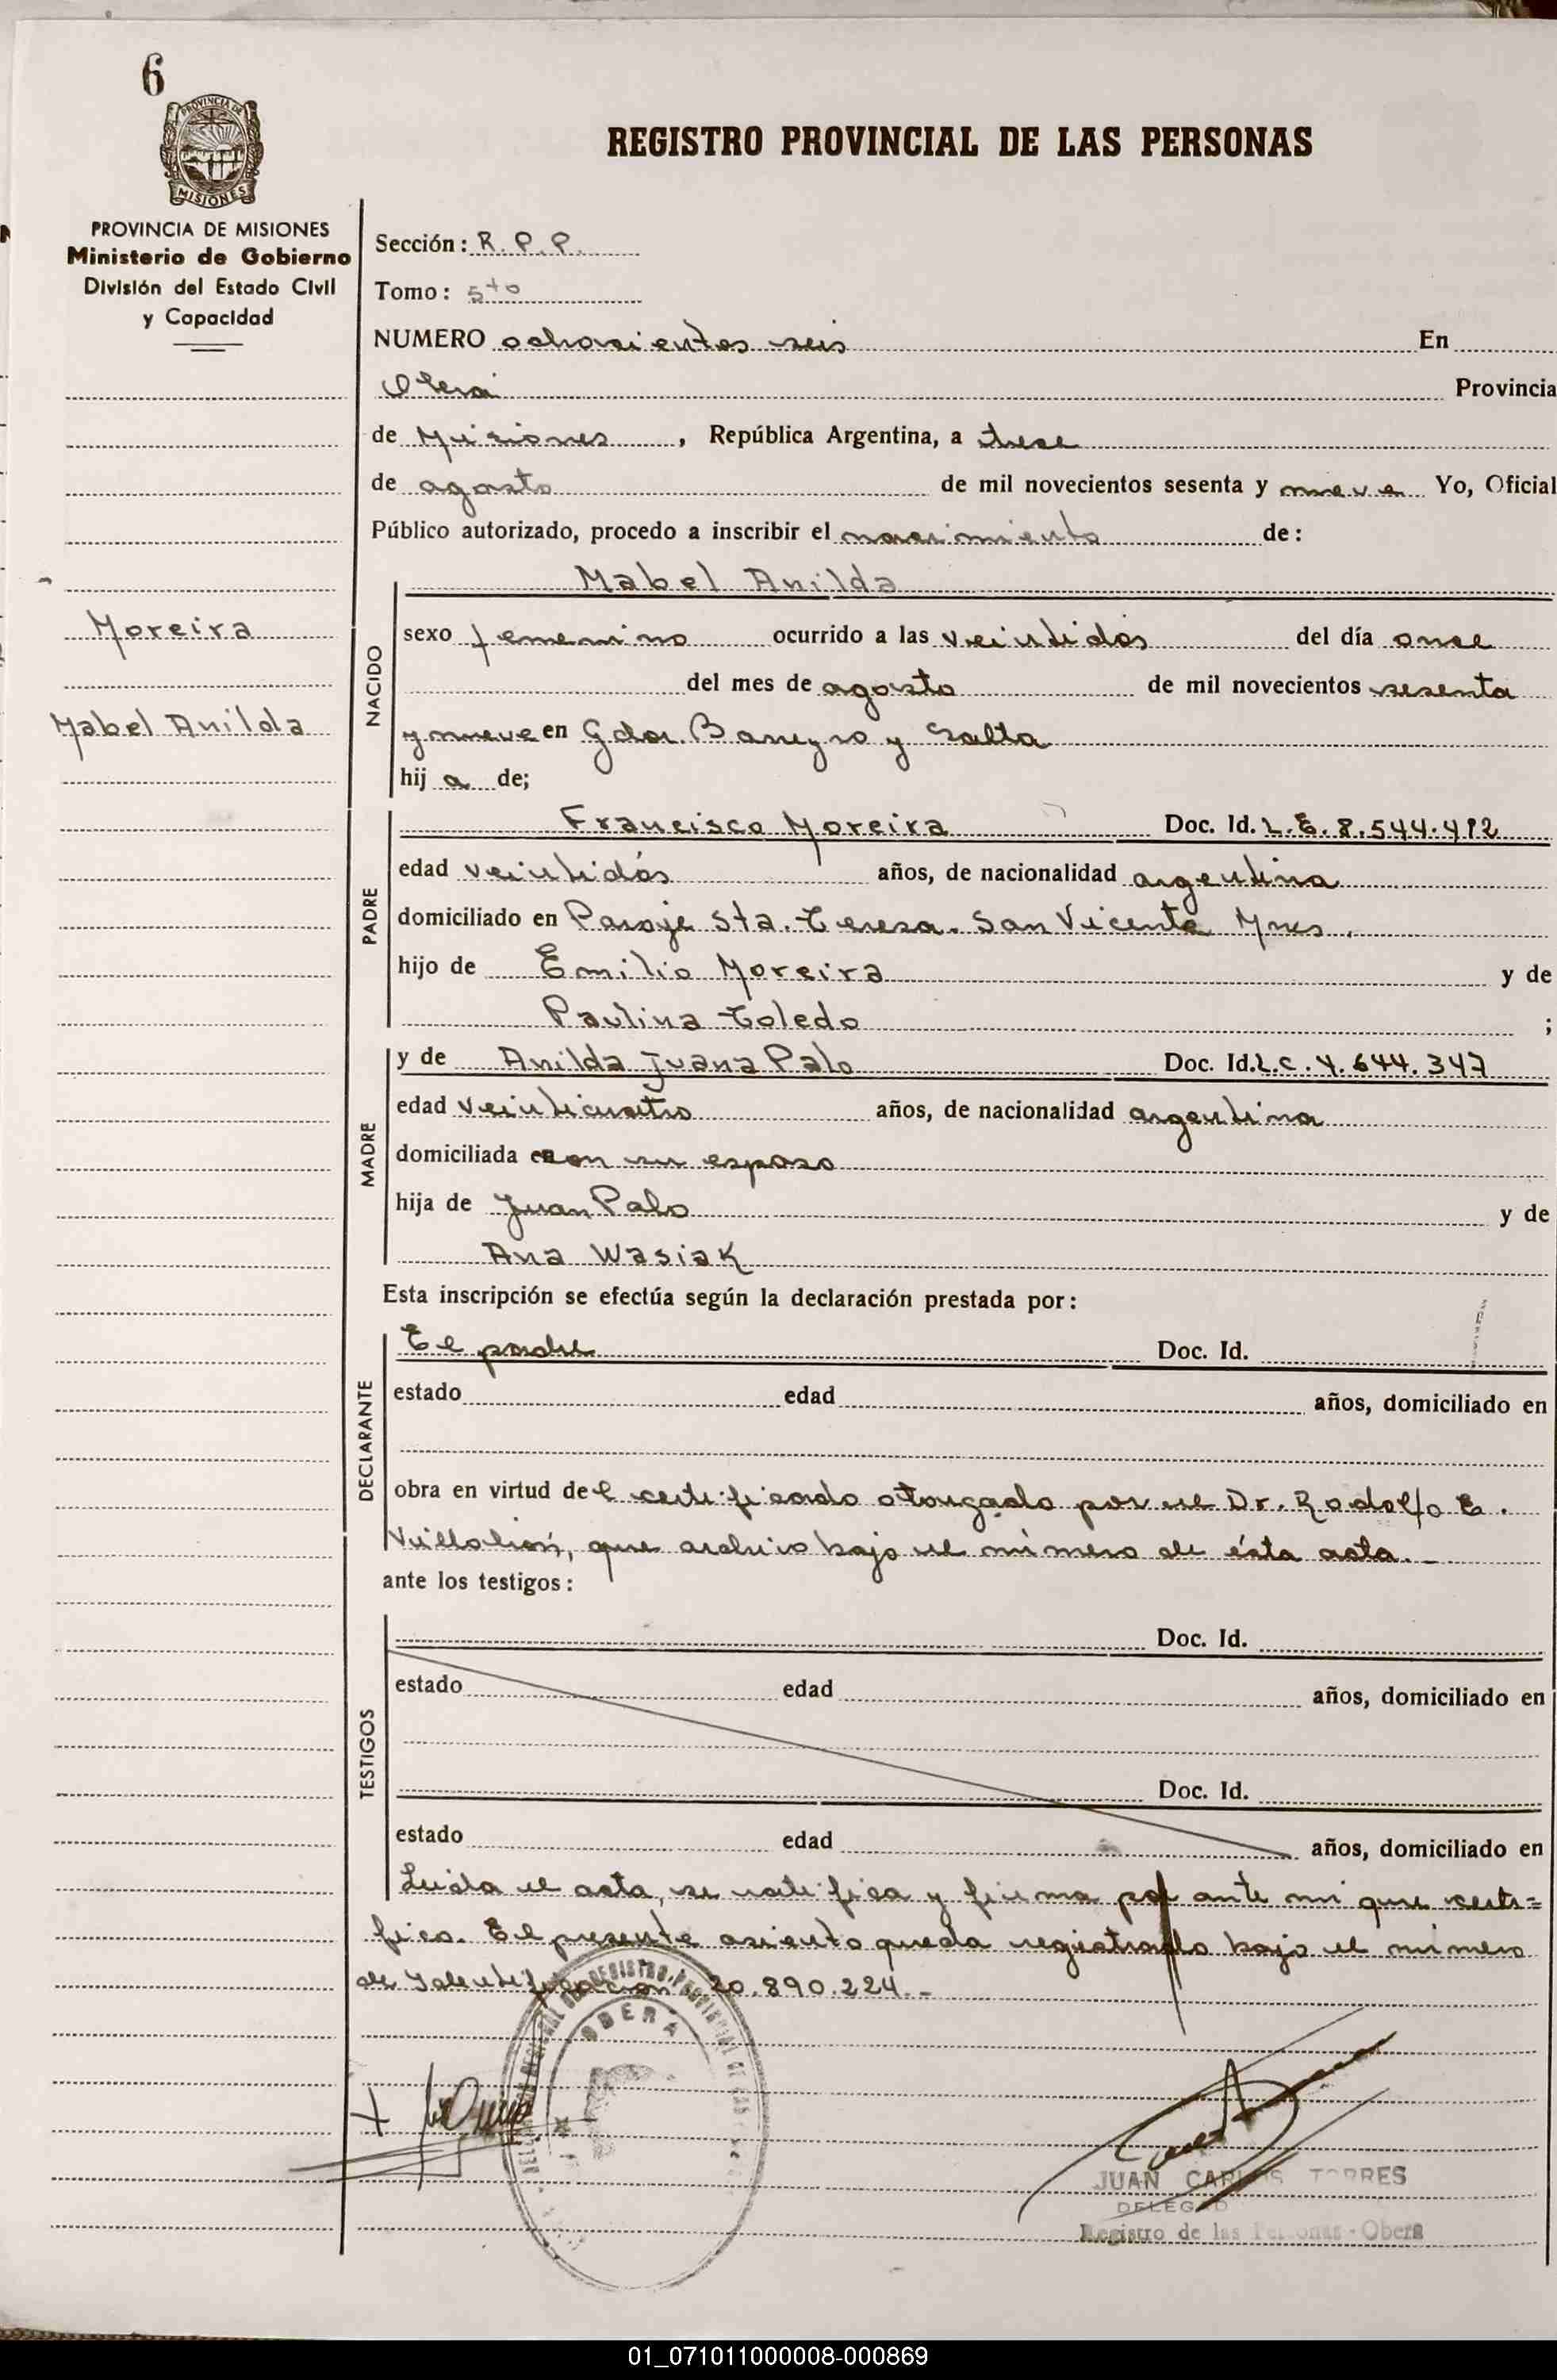 6
PROVINCIA DE
MISIONES
REGISTRO PROVINCIAL DE LAS PERSONAS
PROVINCIA DE MISIONES
Ministerio de Gobierno
División del Estado Civil
y Capacidad
Sección: R. P. P.
Tomo: 5to
NUMERO ochocientos seis En
Oberá Provincia
de Misiones, República Argentina, a trece
de agosto de mil novecientos sesenta y nueve Yo, Oficial
Público autorizado, procedo a inscribir el nacimiento de:
Mabel Anilda
Moreira
Mabel Anilda
NACIDO
sexo femenino ocurrido a las veintidós del día once
del mes de agosto de mil novecientos sesenta
y nueve en Gdor. Barreyro y Salta
hija de;
PADRE
Francisco Moreira Doc. Id. L.E. 8.544.412
edad veintidós años, de nacionalidad argentina
domiciliado en Paraje Sta. Teresa. San Vicente Mnes.
hijo de Emilio Moreira y de
Paulina Toledo ;
MADRE
y de Anilda Juana Palo Doc. Id. L.C. 4.644.347
edad veinticuatro años, de nacionalidad argentina
domiciliada con su esposo
hija de Juan Palo y de
Ana Wasiak
Esta inscripción se efectúa según la declaración prestada por:
DECLARANTE
El padre Doc. Id.
estado edad años, domiciliado en
obra en virtud del certificado otorgado por el Dr. Rodolfo E.
Villalón, que archivo bajo el número de ésta acta.
ante los testigos:
TESTIGOS
Doc. Id.
estado edad años, domiciliado en
Doc. Id.
estado edad años, domiciliado en
Leida el acta, se ratifica y firma por ante mi que certi=
fico. El presente asiento queda registrado bajo el número
de Identificación 20.890.224.-
OBERÁ
JUAN CARLOS TORRES
DELEGADO
Registro de las Personas - Oberá
01_071011000008-000869